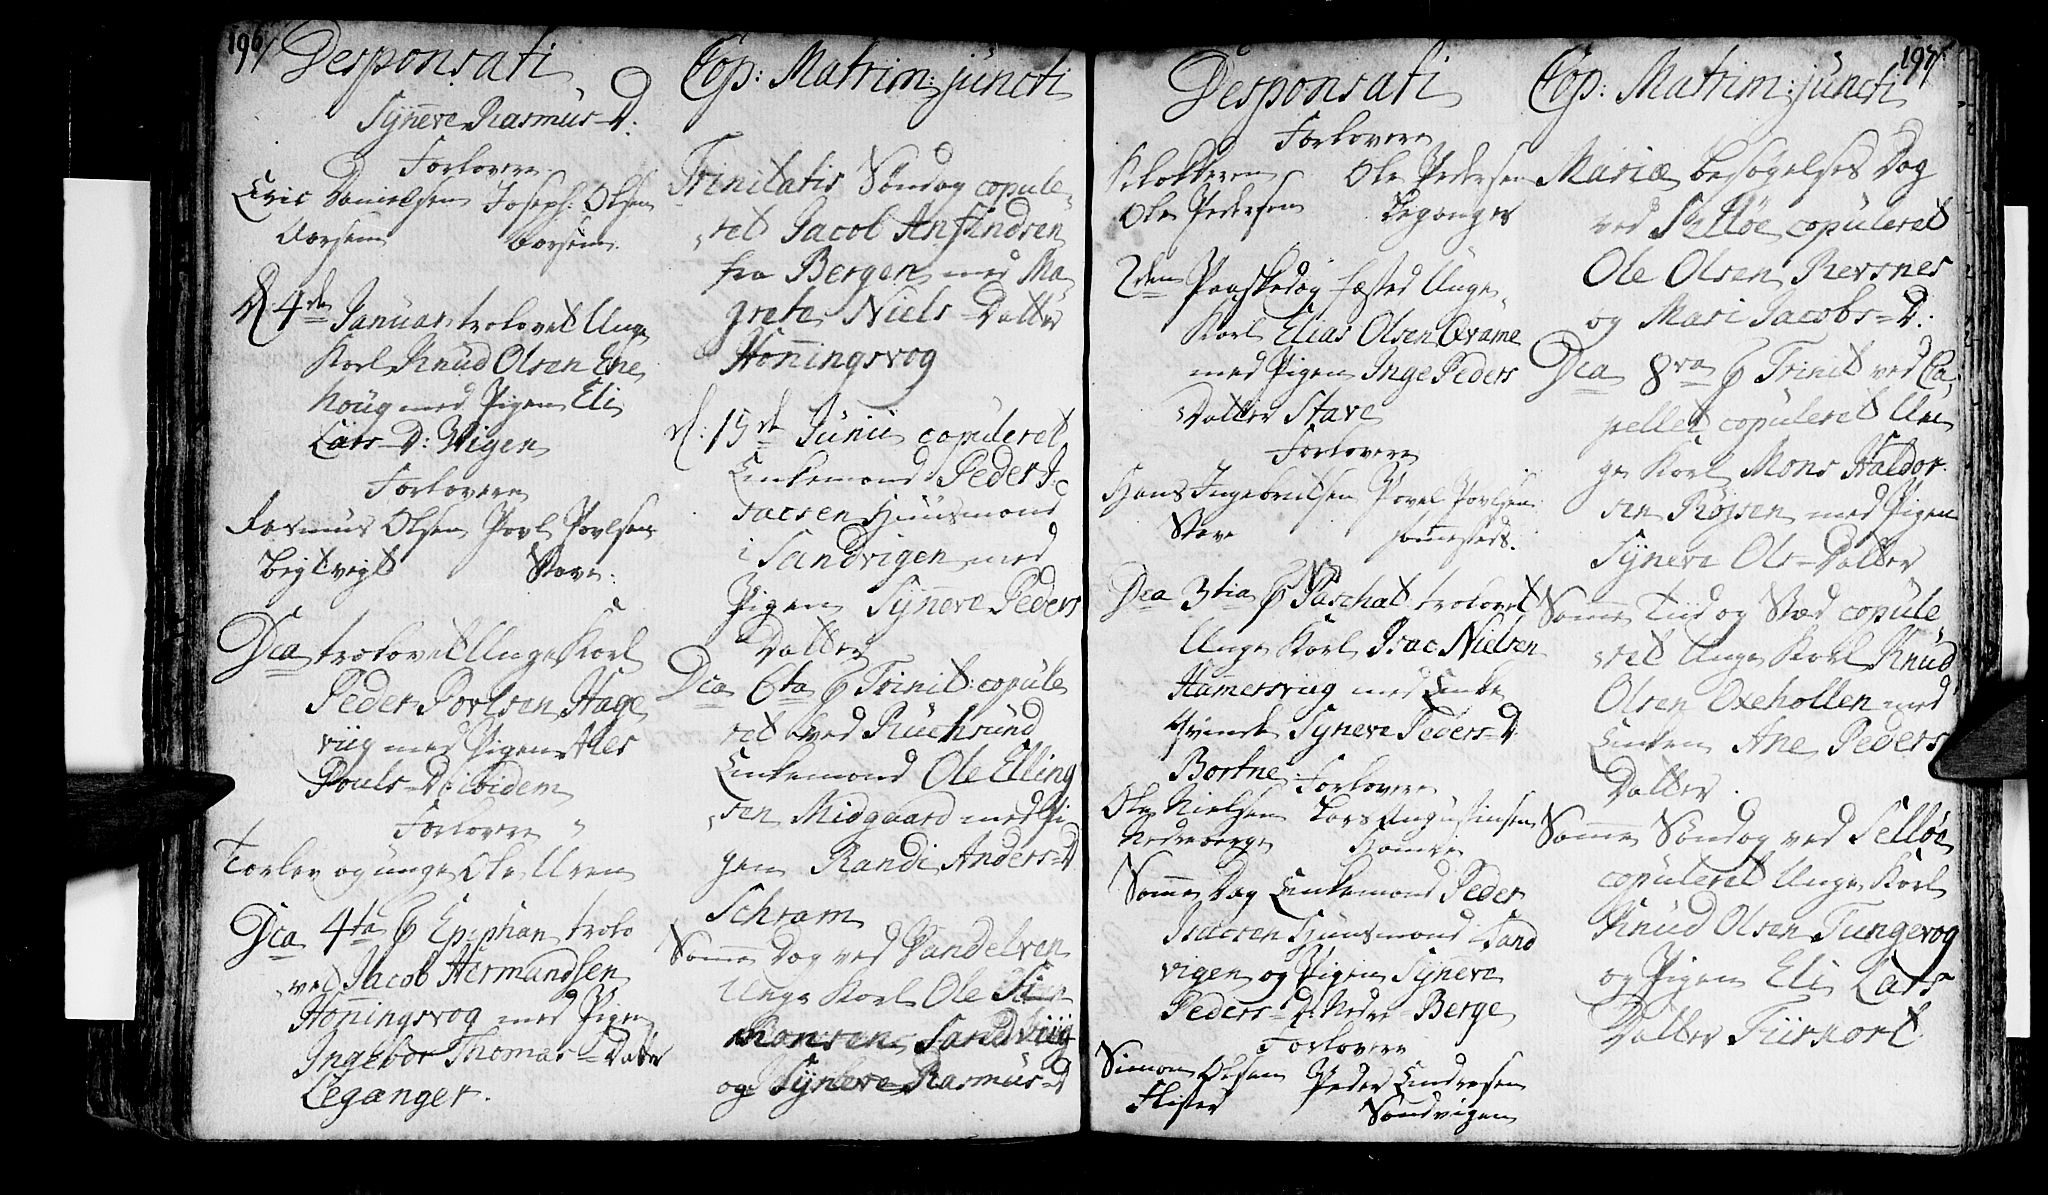 196
Desponsati
Synneve Rasmus-D:
Forlovere
Eric Danielsen Joseph Olsen
d. 4de Januar trolovet Unge
Karl Knud Olsen Ene
houg med Pigen Eli
Lars-D: Wigen
Forlovere
Rasmus Olsen Povl Povlsen
Stave:
Dca trolovet Unge Karl
Peder Povlsen Hage
viig med Pigen Ales
Pouls-D: ibidem
Forlovere
Torlev og unge Ole Uren
Dca 4ta p Epiphan trolo
vet Jacob Hermandsen
Honningsvog med Pigen
Ingebor Thomas-Datter
Leganger.
Cop: Matrim: juncti
Trinitatis Søndag copule
ret Jacob Anfindsen
fra Bergen med Ma
grete Niels-Datter
Honningsvog
d: 15de Junii copuleret
Enkemand Peder I
sacsen Huusmand
i Sandvigen med
Pigen Synneve Peders
Datter
Dca 6ta p Trinit: copule
ret ved Ruchsund
Enkemand Ole Elling
sen Midgaard med Pi
gen Randi Anders-D
Schram
Samme Dag ved Vandelven
Unge Karl Ole Si
monsen Sandviig
og Synneve Rasmus-D
197
Desponsati
Forlovere
Klokkeren Ole Pedersen
Ole Pedersen Leganger
2den Paaskedag fæsted Unge
Karl Elias Olsen Qvame
med Pigen Inge Peders
Datter Stave
Forlovere
Hans Ingebritsen Povel Povlsen
Stave
Dca 3tia p Paschat trolovet
Unge Karl Isac Nielsen
Hamersviig med Enke
Qvinde Synneve Peders-D
Bortne Forlovere
Ole Nielsen Lars Augustinsen
Nedreberge
Samme Dag Enkemand Peder
Isacsen Huusmand i Sand
vigen og Pigen Synneve
Peders-D: Nedre-Berge
Forlovere
Simon Olsen Peder Endresen
Flister Sandvigen
Cop: Matrim: juncti
Mariæ besøgelses Dag
ved Selløe copuleret
Ole Olsen Revsnes
og Mari Jacobs-D:
Dca 8va p Trinit ved Ca
pellet copuleret Un
ge Karl Mons Haldor
sen Røjsen med Pigen
Synneve Ols-Datter
Samme Tiid og Stæd copule
ret Unge Karl Knud
Olsen Oxehollen med
Enken Ane Peders
Datter.
Samme Søndag ved Selløe
copuleret Unge Karl
Knud Olsen Tungevog
og Pigen Eli Lars
Datter Fürkort